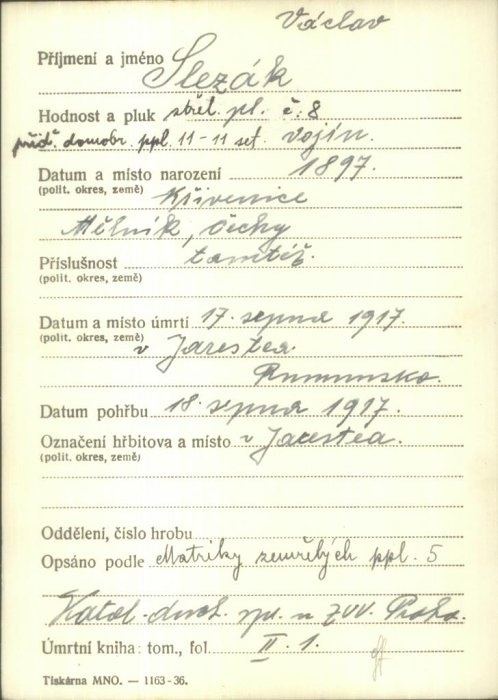 Václav
Příjmení a jméno Slezák
Hodnost a pluk střel. pl. č. 8
příd. domobr. ppl. 11-11 set. vojín.
Datum a místo narození 1897.
(polit. okres, země) Křivenice
Mělník, Čechy
Příslušnost tamtéž.
(polit. okres, země)
Datum a místo úmrtí 17. srpna 1917.
(polit. okres, země) v Jarestea
Rumunsko.
Datum pohřbu 18. srpna 1917.
Označení hřbitova a místo v Jarestea.
(polit. okres, země)
Oddělení, číslo hrobu
Opsáno podle Matriky zemřelých ppl. 5
Katol. duch. spr. u ZVV. Praha.
Úmrtní kniha: tom., fol. II. 1.
Tiskárna MNO. — 1163-36.